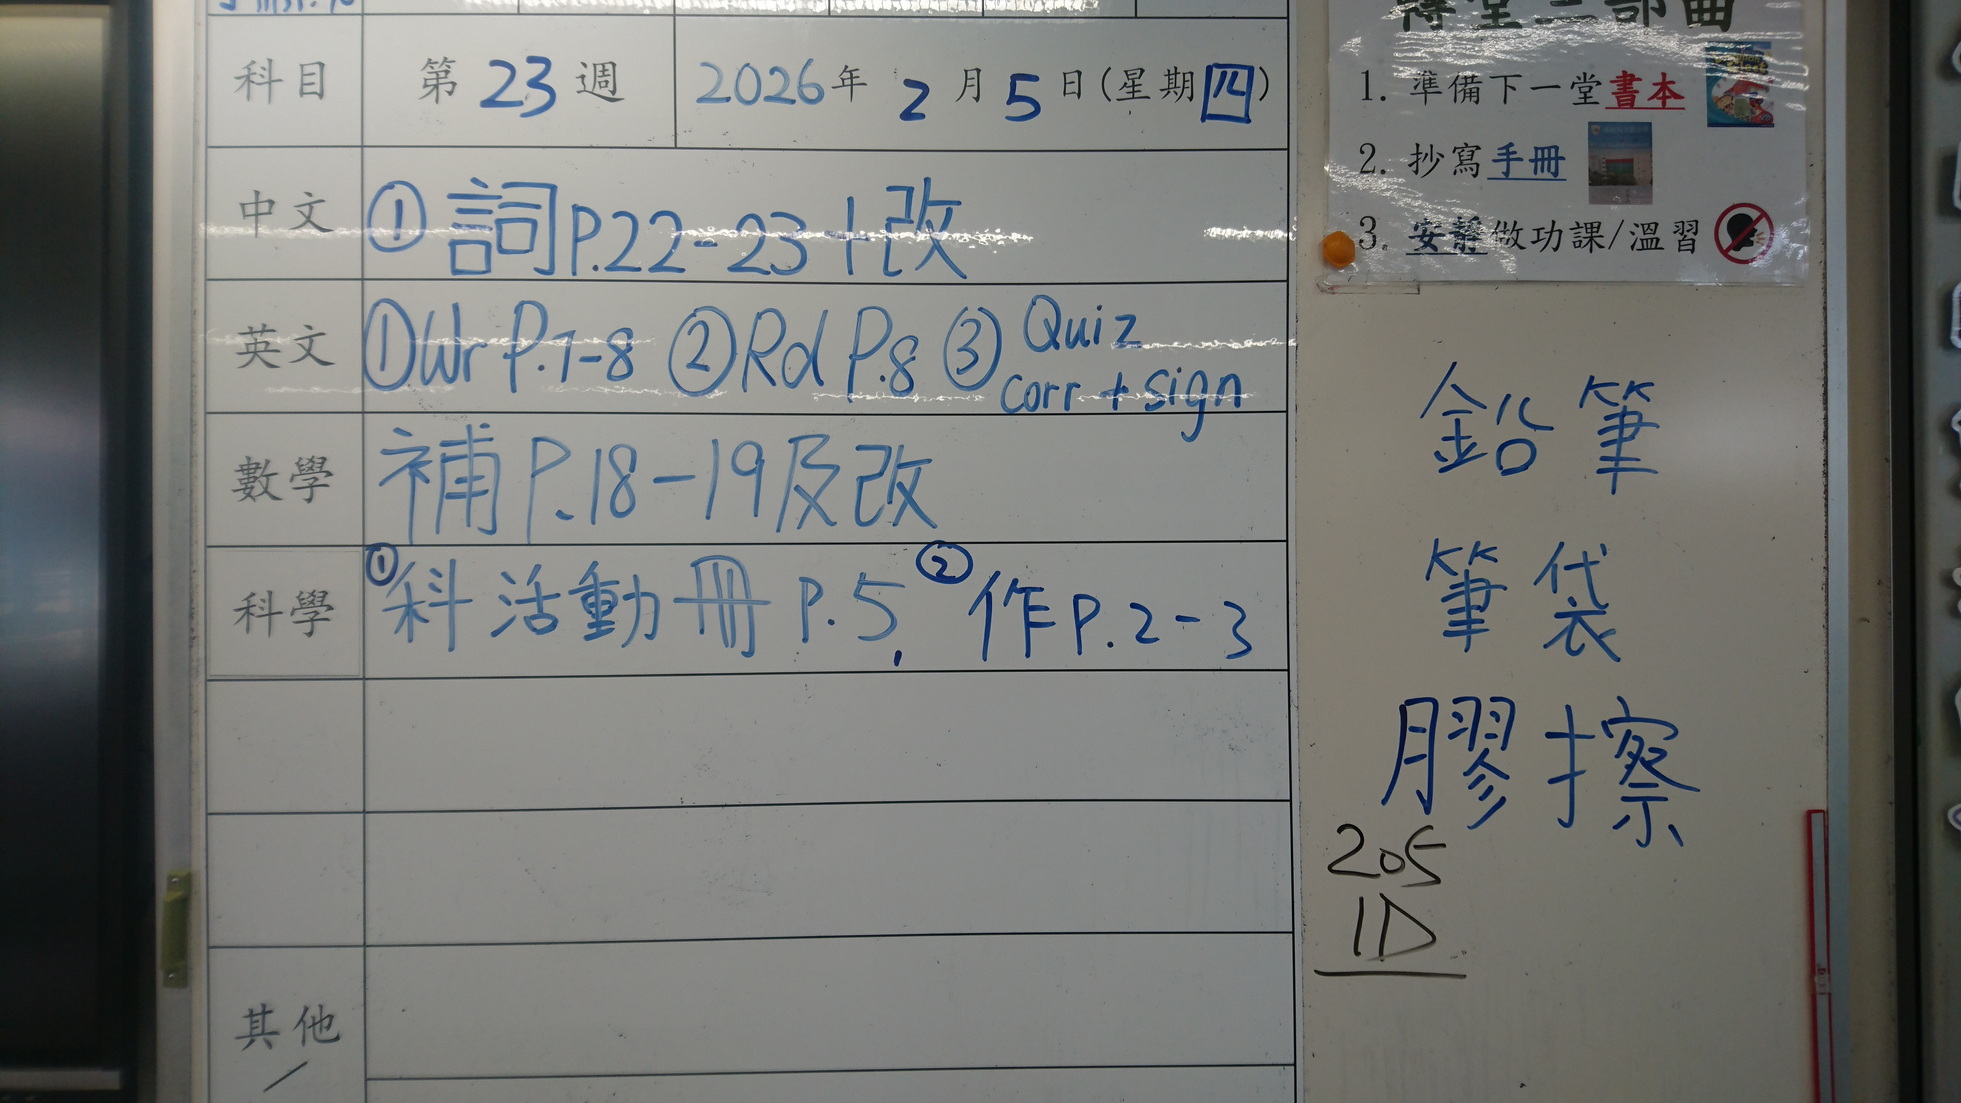 科目 第 23 週 2026年 2 月 5 日(星期四)
中文 ① 詞P.22-23+改
英文 ①Wr P.7-8 ②Rd P.8 ③ Quiz
corr + sign
數學 補 P.18-19及改
科學 ①科活動冊 P.5, ②作P.2-3
其他
轉堂三部曲
1. 準備下一堂書本
2. 抄寫手冊
3. 安靜做功課/溫習
鉛筆
筆袋
膠擦
205
1D